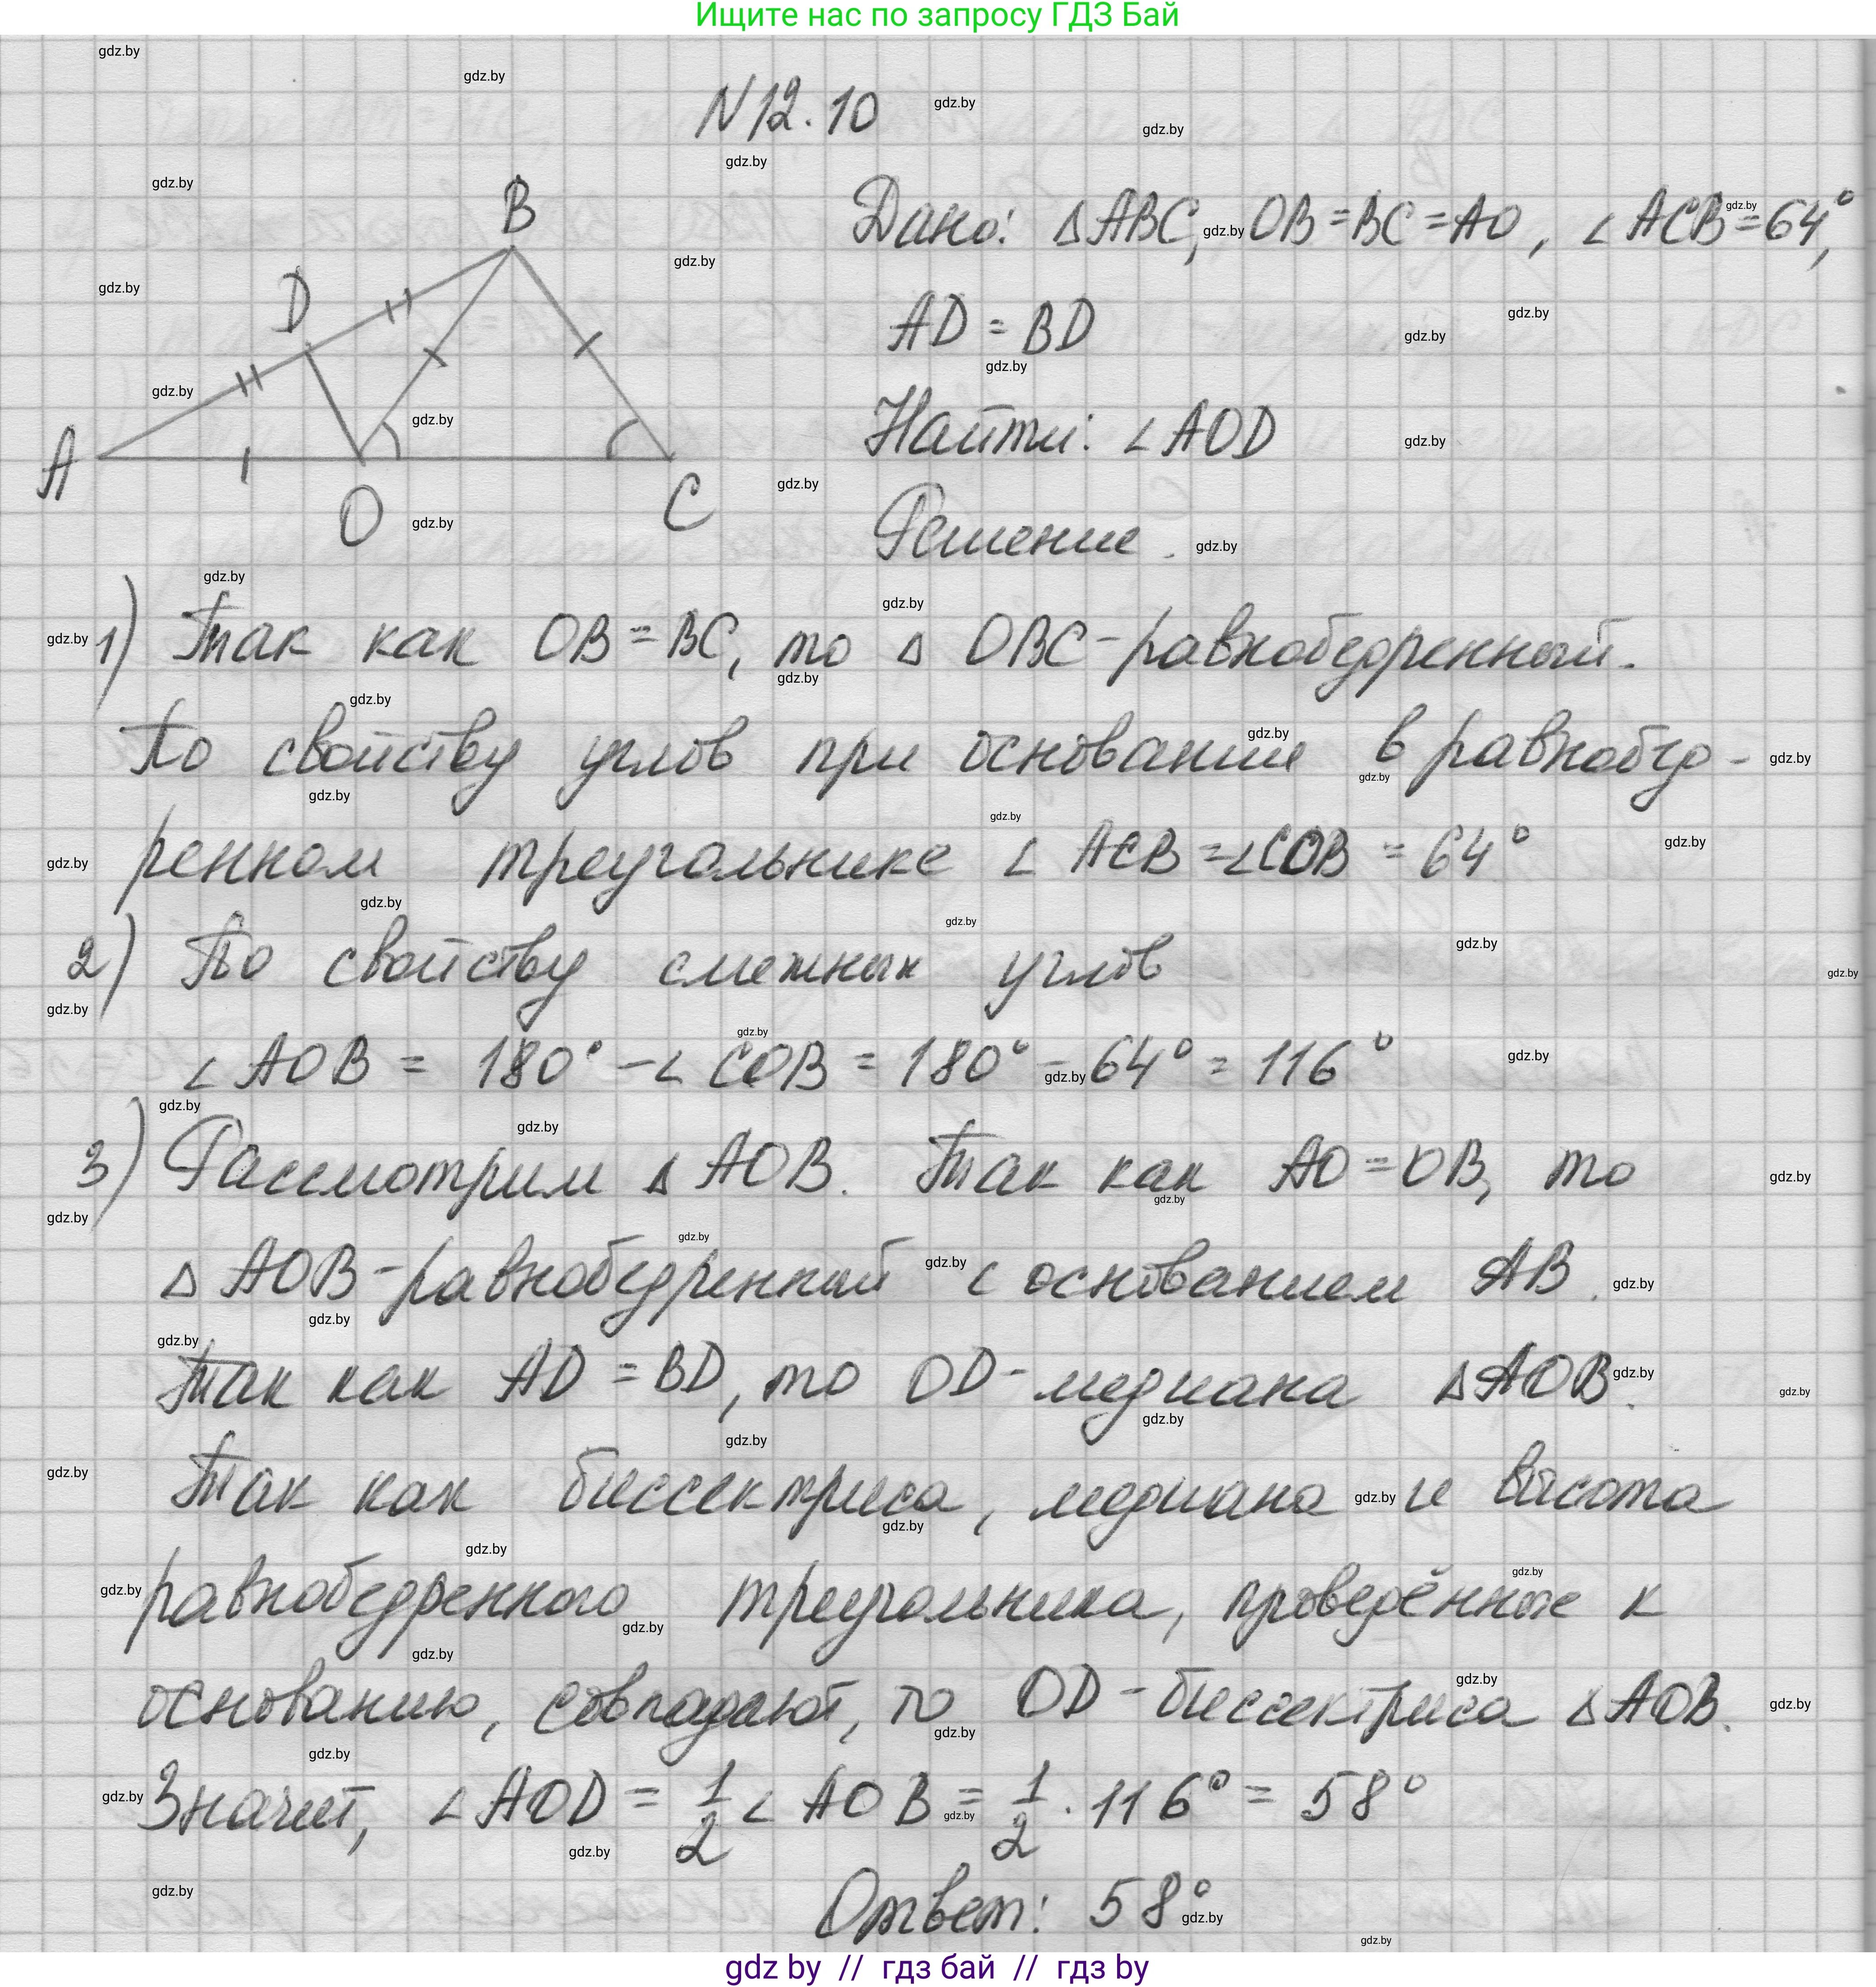 Ищите нас по запросу ГДЗ Бай
N 12.10
Дано: Δ ABC, OB = BC = AO, ∠ ACB = 64°,
AD = BD
Найти: ∠ AOD
Решение.
B
D
A
O
C
1) Так как OB = BC, то Δ OBC - равнобедренный.
По свойству углов при основании в равнобед-
ренном треугольнике ∠ ACB = ∠ COB = 64°
2) По свойству смежных углов
∠ AOB = 180° - ∠ COB = 180° - 64° = 116°
3) Рассмотрим Δ AOB. Так как AO = OB, то
Δ AOB - равнобедренный с основанием AB.
Так как AD = BD, то OD - медиана Δ AOB.
Так как биссектриса, медиана и высота
равнобедренного треугольника, проведённые к
основанию, совпадают, то OD - биссектриса Δ AOB.
Значит, ∠ AOD = 1/2 ∠ AOB = 1/2 · 116° = 58°
Ответ: 58°
gdz by // гдз бай // гдз by